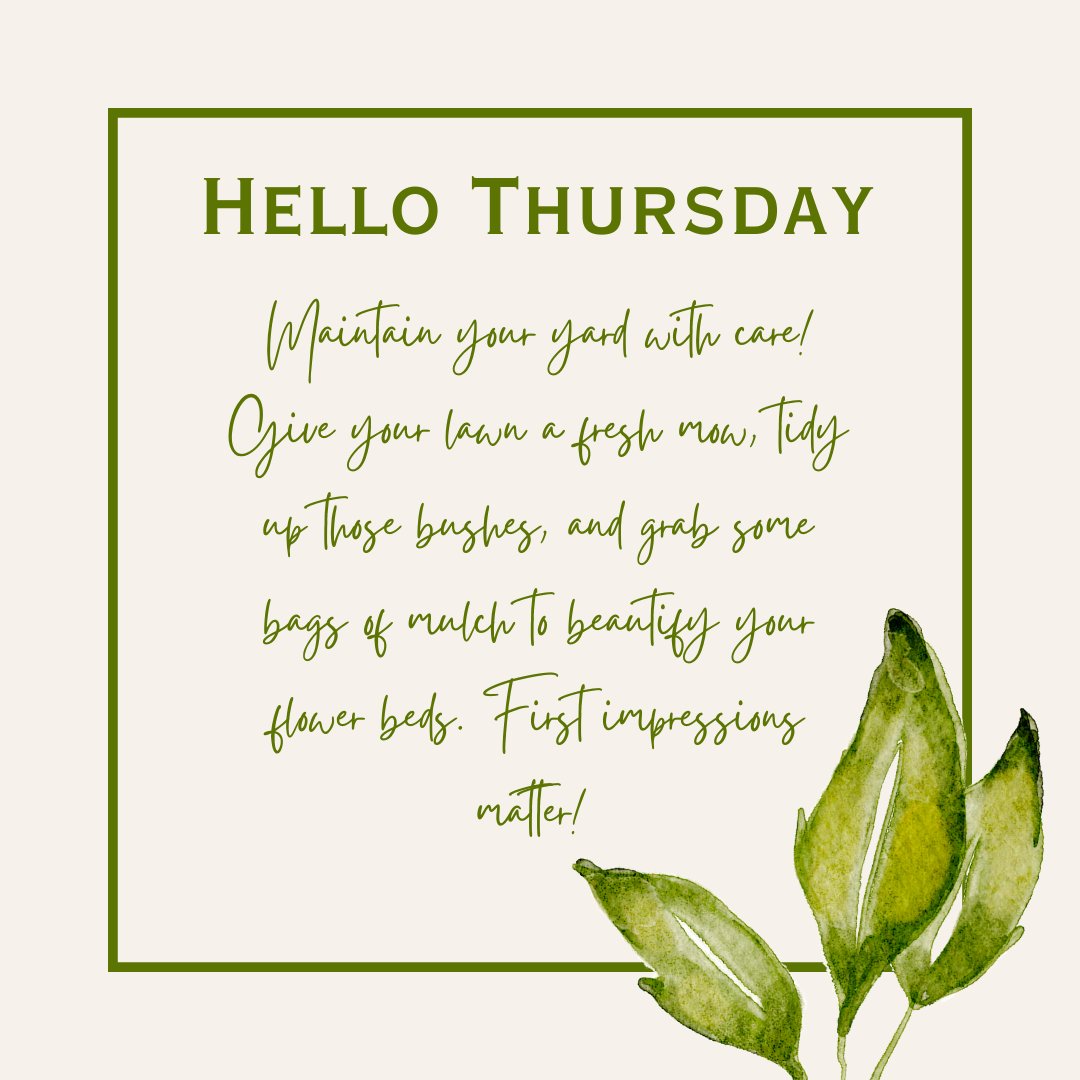 Hello Thursday
Maintain your yard with care!
Give your lawn a fresh mow, tidy
up those bushes, and grab some
bags of mulch to beautify your
flower beds. First impressions
matter!